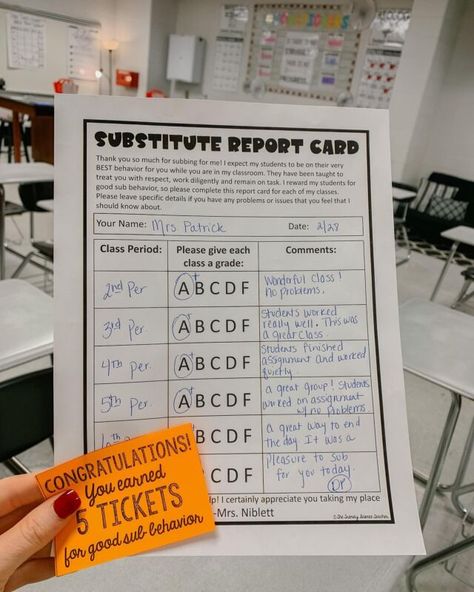 SUBSTITUTE REPORT CARD
Thank you so much for subbing for me! I expect my students to be on their very
BEST behavior for you while you are in my classroom. They have been taught to
treat you with respect, work diligently and remain on task. I reward my students for
good sub behavior, so please complete this report card for each of my classes.
Please leave specific details if you have any problems or issues that you feel that I
should know about.
Your Name: Mrs Patrick Date: 2/28
Class Period: Please give each class a grade: Comments:
2nd Per A+ B C D F Wonderful class!
no problems.
3rd Per A+ B C D F Students worked
really well. This was
a great class
4th Per A+ B C D F Students finished
assignment and worked
quietly
5th Per A+ B C D F a great group! Students
worked on assignment
w/ no problems
6th B C D F a great way to end
the day. It was a
C D F pleasure to sub
for you today.
DP
help! I certainly appreciate you taking my place
-Mrs. Niblett
CONGRATULATIONS!
You earned
5 TICKETS
for good sub-behavior